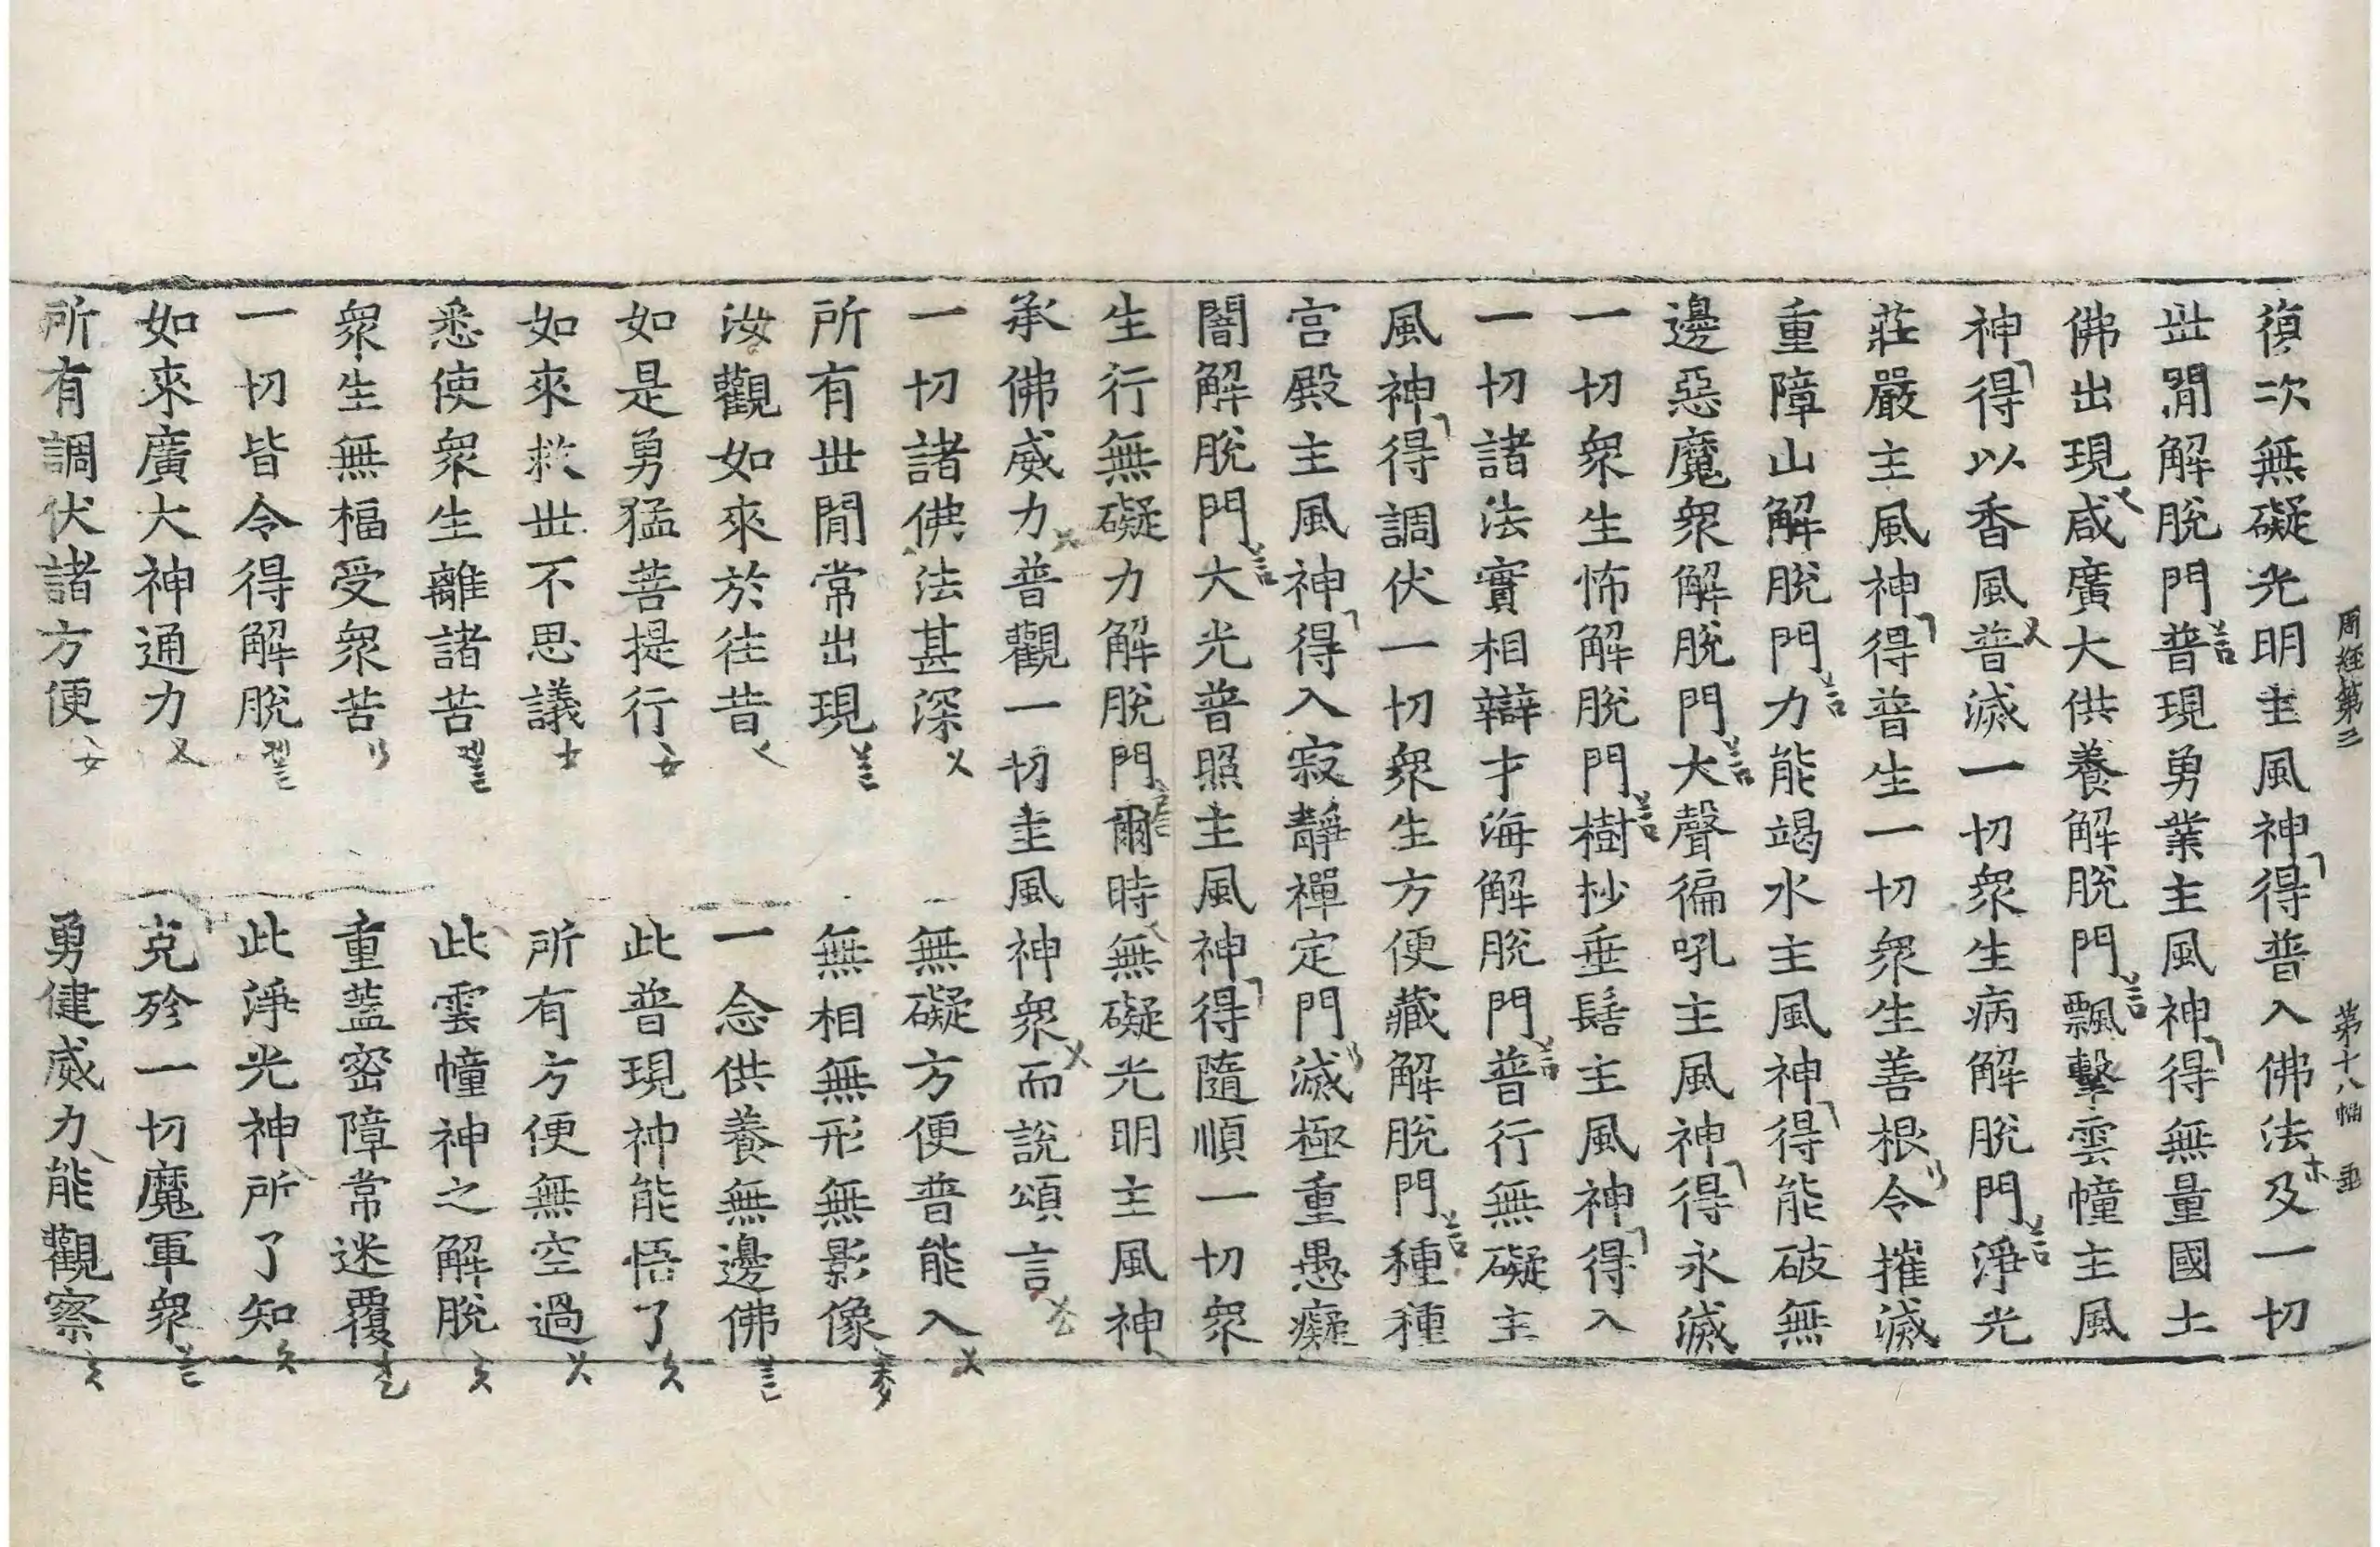 周經第三　第十八幅　垂
復次無礙光明主風神得普入佛法及一切
世間解脫門普現勇業主風神得無量國土
佛出現咸廣大供養解脫門飄擊雲幢主風
神得以香風普滅一切衆生病解脫門淨光
莊嚴主風神得普生一切衆生善根令摧滅
重障山解脫門力能竭水主風神得能破無
邊惡魔衆解脫門大聲徧吼主風神得永滅
一切衆生怖解脫門樹杪垂髻主風神得入
一切諸法實相辯才海解脫門普行無礙主
風神得調伏一切衆生方便藏解脫門種種
宮殿主風神得入寂靜禪定門滅極重愚癡
闇解脫門大光普照主風神得隨順一切衆
生行無礙力解脫門爾時無礙光明主風神
承佛威力普觀一切主風神衆而說頌言
一切諸佛法甚深　無礙方便普能入
所有世間常出現　無相無形無影像
汝觀如來於往昔　一念供養無邊佛
如是勇猛菩提行　此普現神能悟了
如來救世不思議　所有方便無空過
悉使衆生離諸苦　此雲幢神之解脫
衆生無福受衆苦　重蓋密障常迷覆
一切皆令得解脫　此淨光神所了知
如來廣大神通力　克殄一切魔軍衆
所有調伏諸方便　勇健威力能觀察